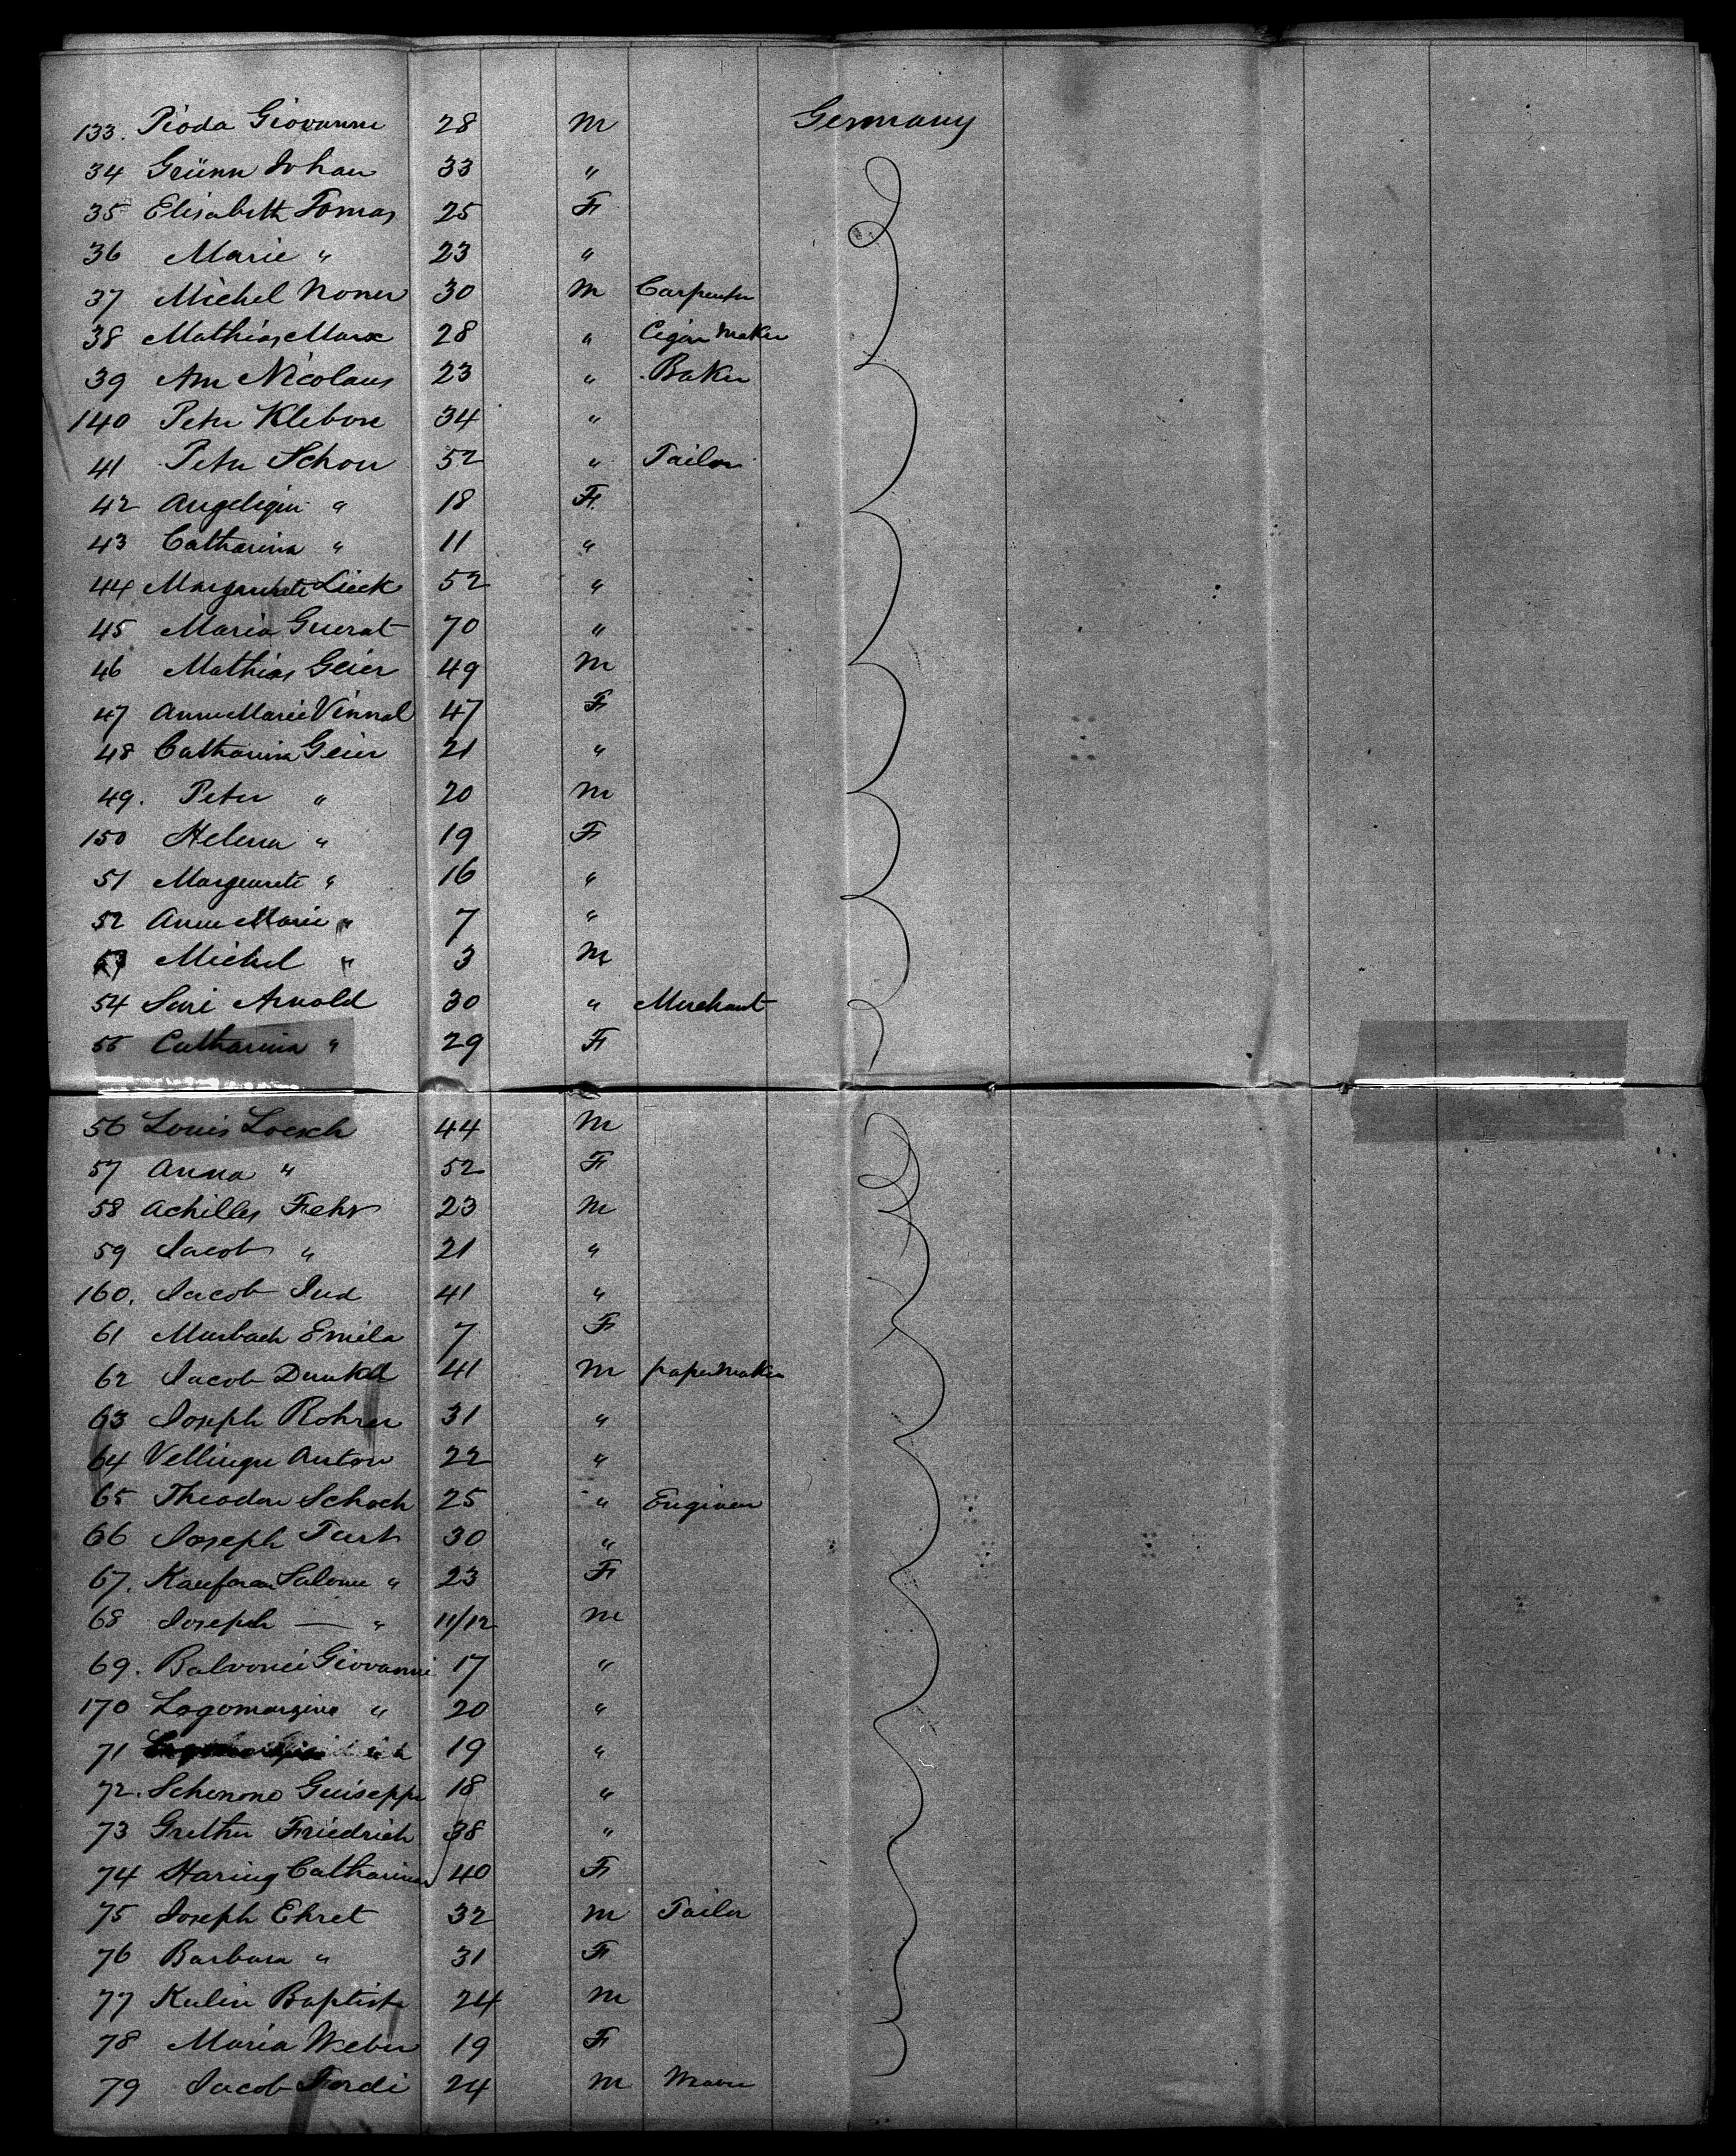 133. Pioda Giovanni 28 M Germany
34 Grünn Johan 33 "
35 Elisabeth Tomas 25 F
36 Marie " 23 "
37 Michel Noner 30 M Carpenter
38 Mathias Marx 28 " Cigar Maker
39 Am Nicolaus 23 " Baker
140 Peter Klebore 34 "
41 Peter Schon 52 " Tailor
42 Angeliqui " 18 F
43 Catharina " 11 "
44 Margarete Lieck 52 "
45 Maria Guerat 70 "
46 Mathias Geier 49 M
47 Anne Marie Vinnal 47 F
48 Catharina Geier 21 "
49. Peter " 20 M
150 Helena " 19 F
51 Margarete " 16 "
52 Anne Marie " 7 "
53 Michel " 3 M
54 Suri Arnold 30 " Merchant
55 Catharina " 29 F
56 Louis Loesch 44 M
57 Anna " 52 F
58 Achilles Fehr 23 M
59 Jacob " 21 "
160. Jacob Jud 41 "
61 Murbach Emila 7 F
62 Jacob Dunkel 41 M papermaker
63 Joseph Rohrer 31 "
64 Vellinger Anton 22 "
65 Theodor Schoch 25 " Engineer
66 Joseph Turt 30 "
67. Salome " 23 F
68 Joseph — " 11/12 M
69. Balvonci Giovanni 17 "
170 Lagomarzino " 20 "
71 19 "
72. Schenono Guiseppe 18 "
73 Grether Friedrich 38 "
74 Haring Catharina 40 F
75 Joseph Ehret 32 M Tailor
76 Barbara " 31 F
77 Kulin Baptiste 24 M
78 Maria Weber 19 F
79 Jacob Ferdi 24 M